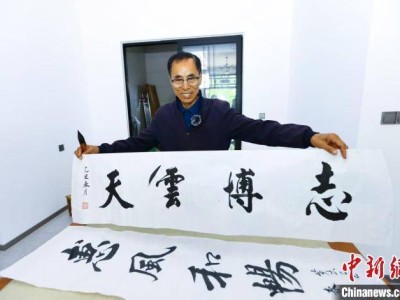 志博雲天
乙巳
惠風和暢
中新
Chinanews.c